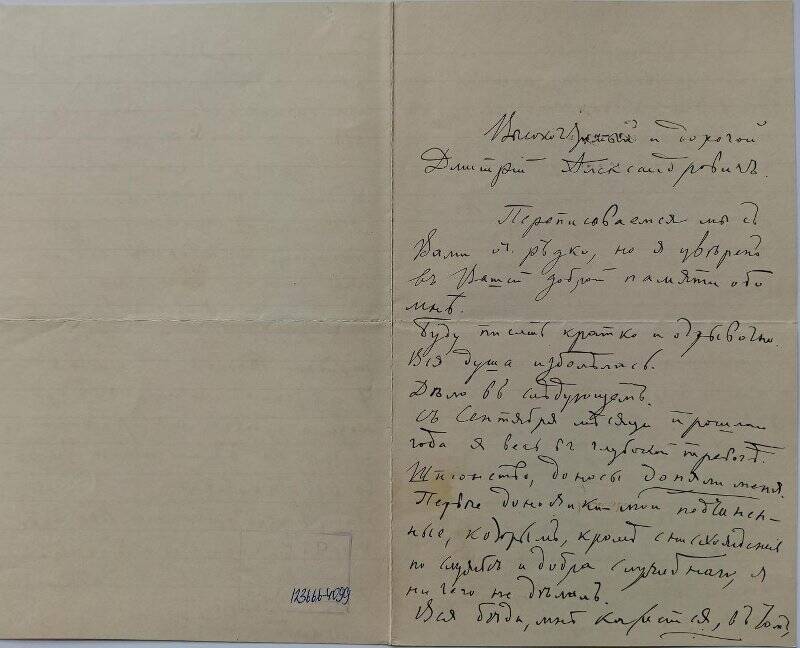 Высокочтимый и дорогой
Дмитрій Александровичъ.
Переписываемся мы съ
Вами оч. рѣдко, но я увѣренъ
въ Вашей доброй памяти обо
мнѣ.
Буду писать кратко и отрывочно.
Вся душа изболѣлась.
Дѣло въ слѣдующемъ.
Съ Сентября мѣсяца прошлаго
года я весь въ глубокой тревогѣ.
Шпіонство, доносы доняли меня.
Первые доносчики – мои подчинен-
ные, которымъ, кромѣ снисхожденія
по службѣ и добра служебнаго, я
ничего не дѣлалъ.
Вся бѣда, мнѣ кажется, въ томъ,
123666-4099